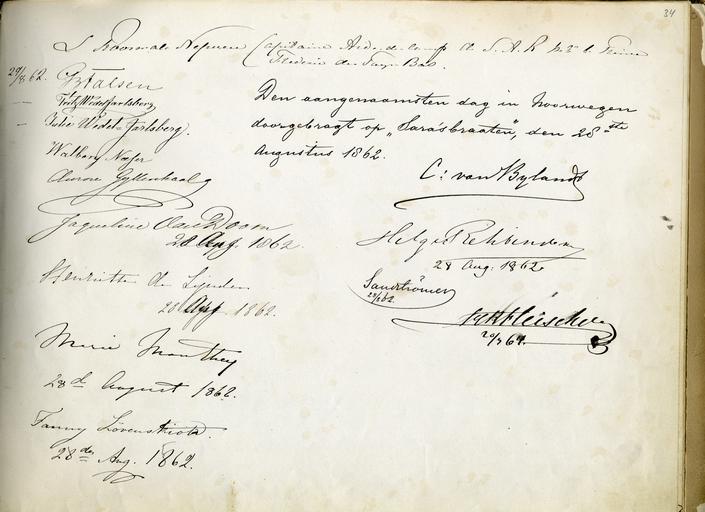 34
Capitaine Aide de camp de S. A. R. le Prince
Frederic des Pays Bas.
29/8 62.
Fritz Wedel Jarlsberg
Julie Wedel-Jarlsberg.
Walborg Næser
Aurore Gyllenhaal
Jaqueline
28 Aug. 1862
Henriette de Lijnden
28 Aug 1862.
Marie Manthey
28de August 1862.
Fanny Løvenskiold.
28de Aug. 1862.
Den aangenaamsten dag in Noorwegen
doorgebragt op „Sarasbraaten", den 28ste
Augustus 1862.
C: van Bylandt
Helge Rehbinder
28 Aug: 1862
Sandströmer
28/8 62.